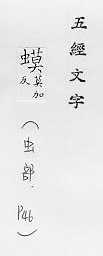 五經文字
蟆莫加反（虫部．P46）